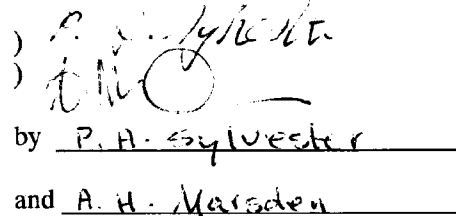 )
)
by P. H. Sylvester
and A. H. Marsden